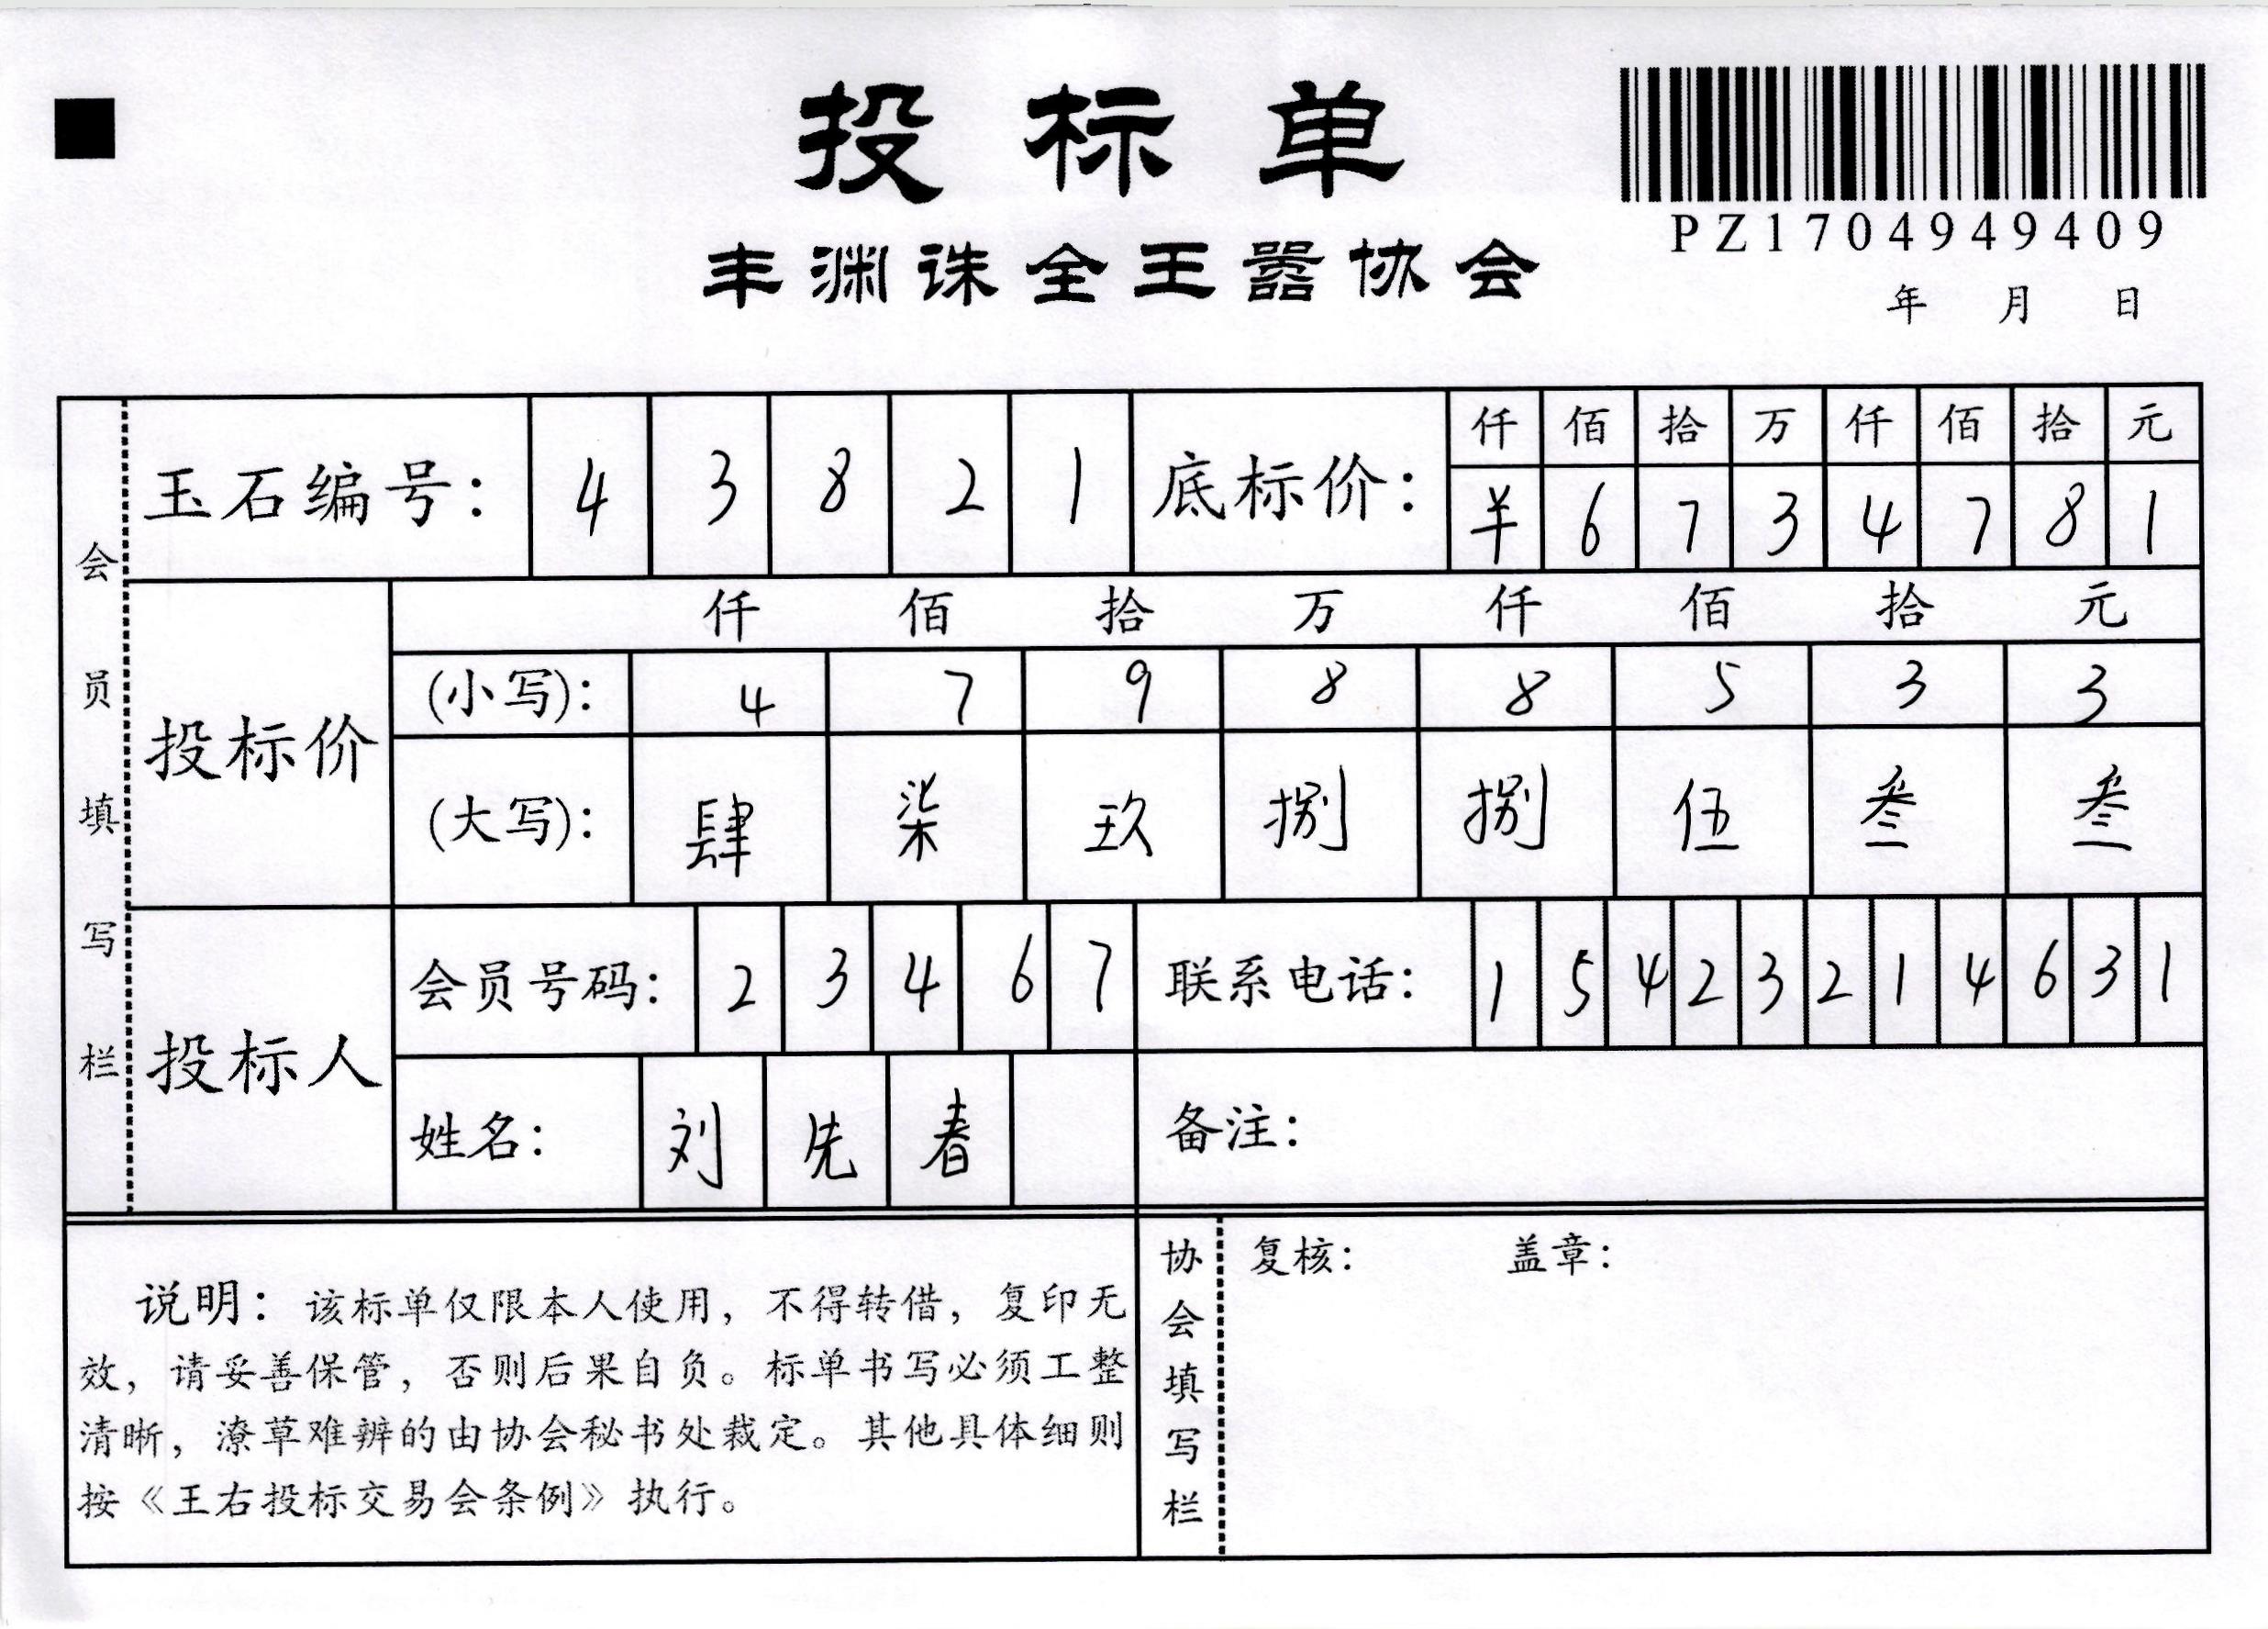 投标单
丰渊诛全王嚣协会
PZ1704949409
年 月 日
会员填写栏
玉石编号: 4 3 8 2 1
底标价: 仟 佰 拾 万 仟 佰 拾 元
¥ 6 7 3 4 7 8 1
投标价
仟 佰 拾 万 仟 佰 拾 元
(小写): 4 7 9 8 8 5 3 3
(大写): 肆 柒 玖 捌 捌 伍 叁 叁
投标人
会员号码: 2 3 4 6 7
联系电话: 1 5 4 2 3 2 1 4 6 3 1
姓名: 刘 先 春
备注:
说明: 该标单仅限本人使用, 不得转借, 复印无
效, 请妥善保管, 否则后果自负。标单书写必须工整
清晰, 潦草难辨的由协会秘书处裁定。其他具体细则
按《王右投标交易会条例》执行。
协会填写栏
复核: 盖章: